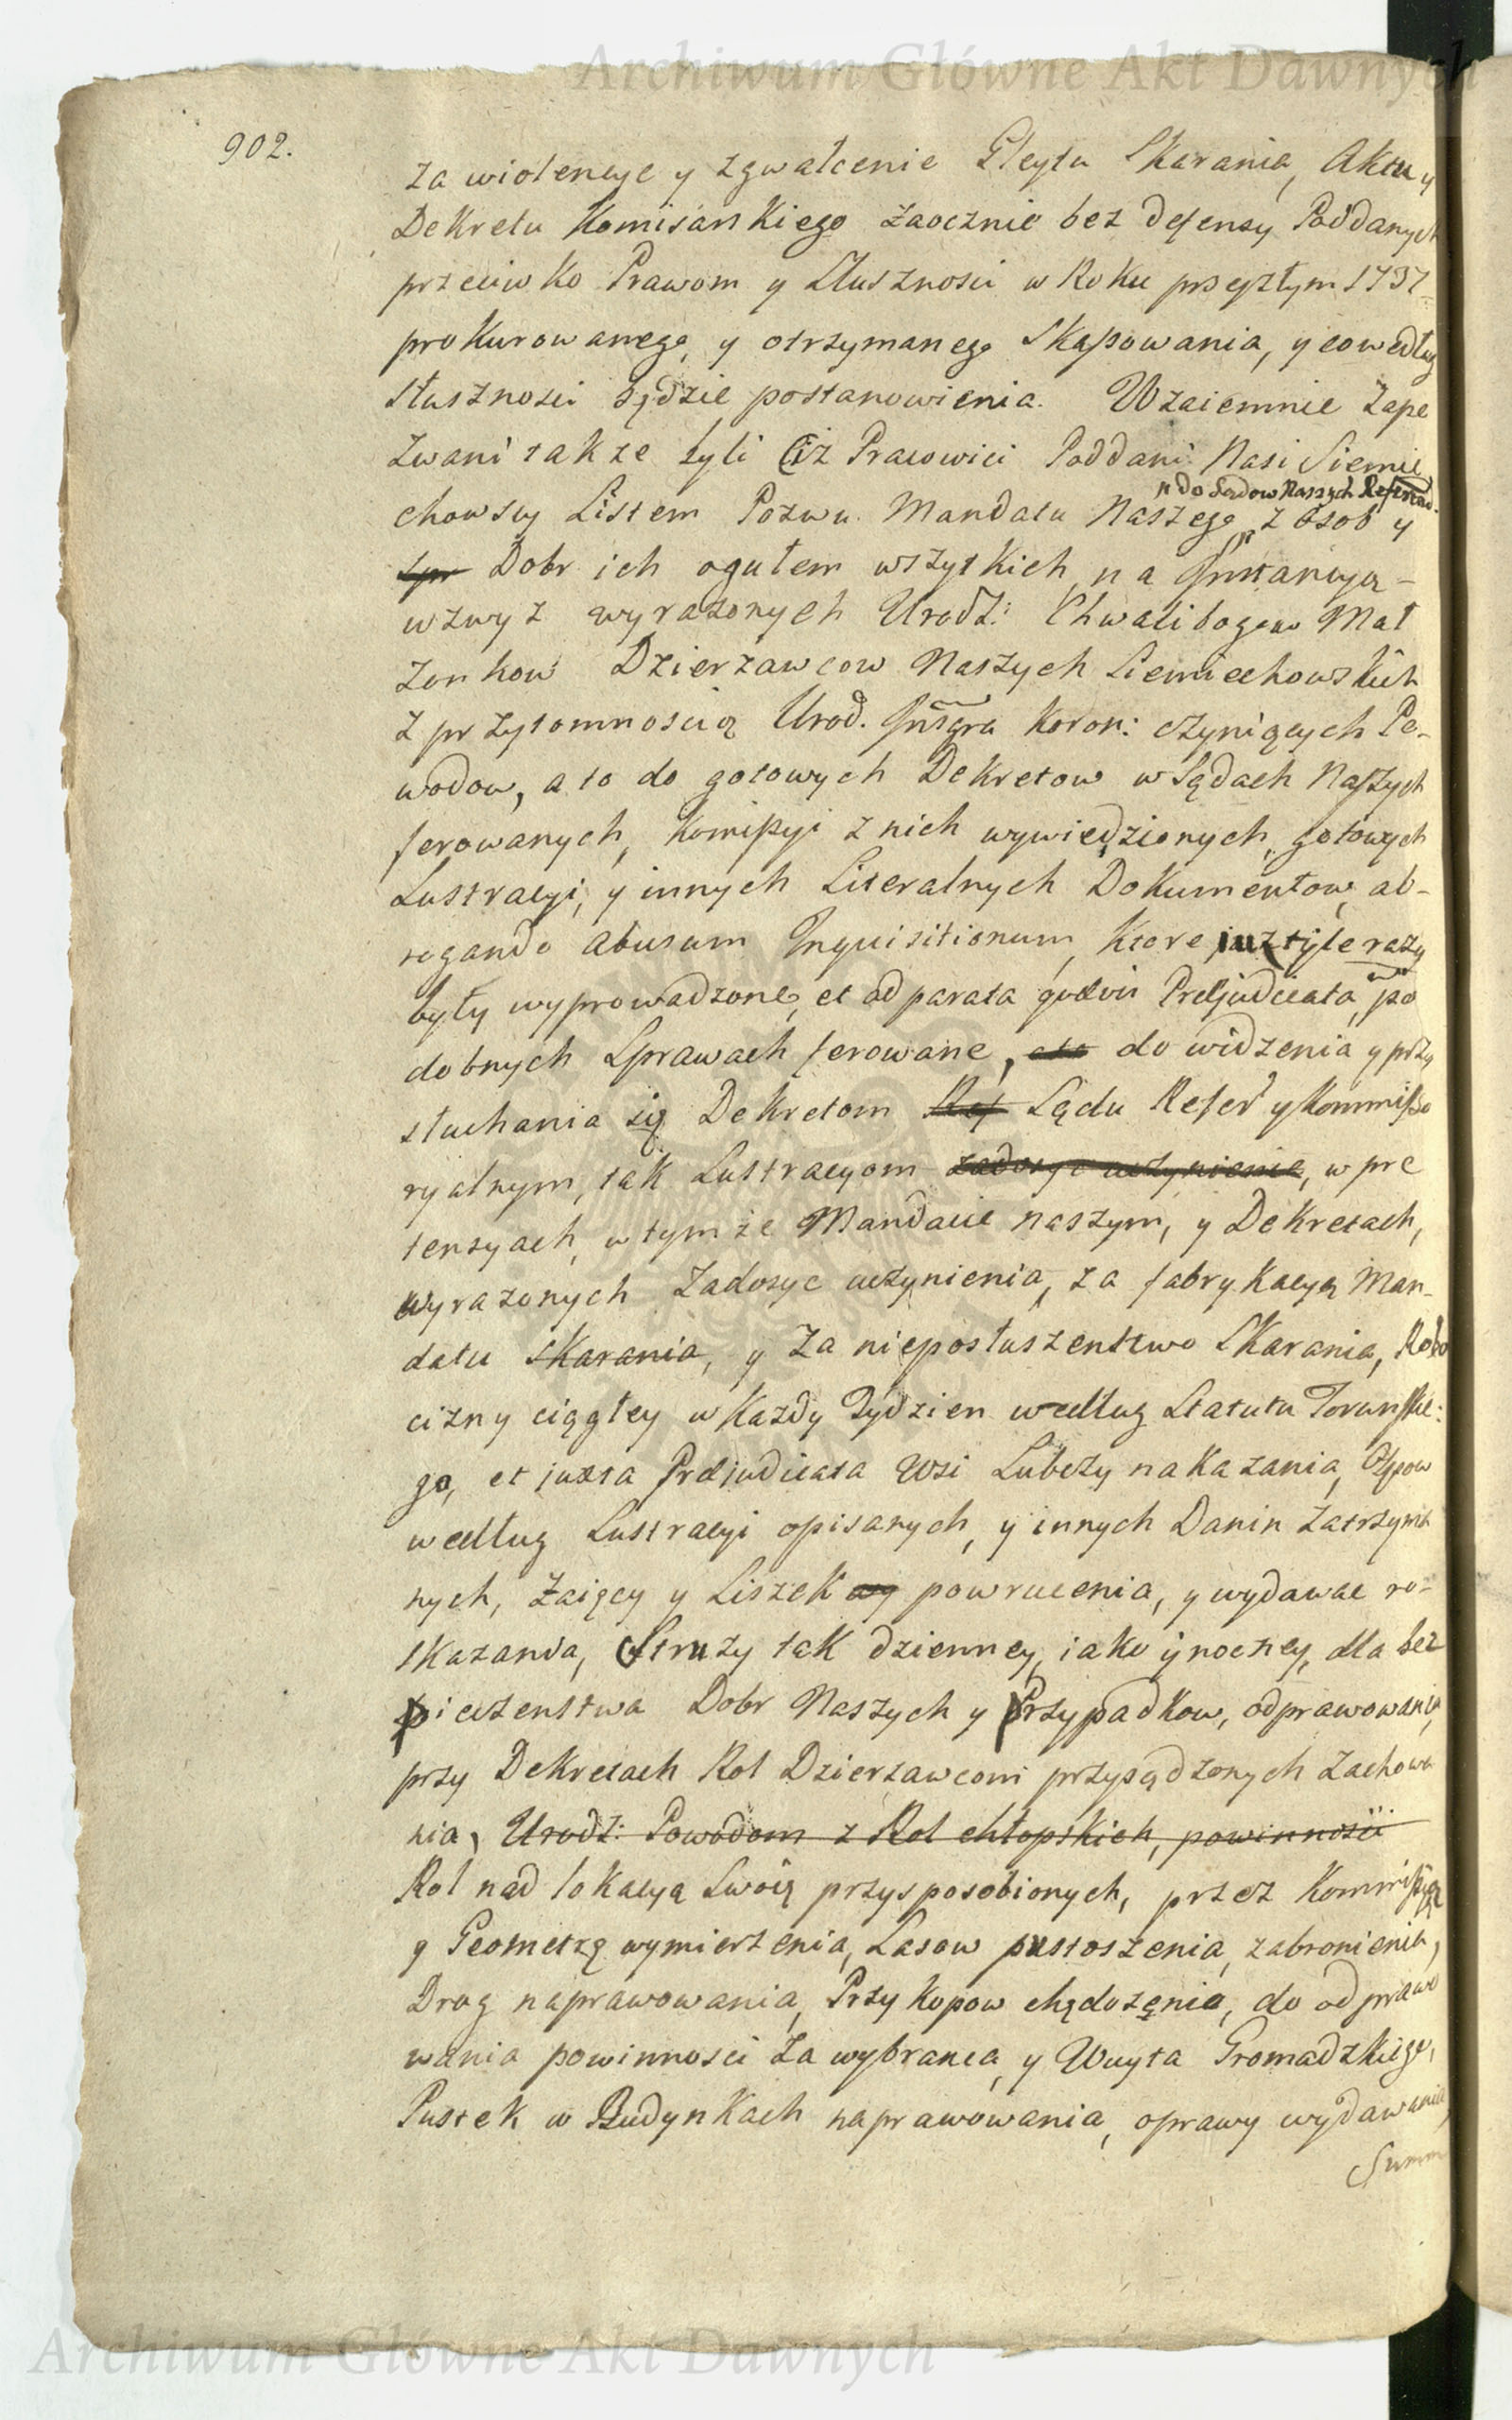 Archiwum Główne Akt Dawnych
902.
za wiolencye y zgwałcenie Gleytu Skarania, Aktu y
Dekretu Komisarskiego zaocznie bez defensy Poddanych
przeciwko Prawom y Słusznosci w Roku przeszłym 1737
prokurowanego, y otrzymanego Skassowania, y co według
słusznosci będzie postanowienia. Wzaiemnie Zape
zwani także byli Ciż Pracowici Poddani Nasi Siemie
chowscy Listem Pozwu Mandatu Naszego do Sądow Naszych Referen. z Osob y
spr Dobr ich ogułem wszytkich, na Instancyą
wzwyż wyrażonych Urodz: Chwalibogow Mał
żonkow Dzierzawcow Naszych Siemiechowskich
z przytomnoscią Urod. Instgra Koron: czyniących Po-
wodow, a to do gotowych Dekretow w Sądach Naszych
ferowanych, Komissyi z nich wywiedzionych, gotowych
Lustracyi, y innych Literalnych Dokumentow, ab-
rogando abusum Inquisitionum, Ktore iuz tyle razy
były wyprowadzone, et ad parata Prejudicata, w po
dobnych Sprawach ferowane, ato do widzenia y przy
słuchania się Dekretom Ref Sądu Refer y Kommisso
ryalnym, tak Lustracyom zadosyc uczynienie, w pre
tensyach, w tymże Mandacie naszym, y Dekretach,
wyrażonych Zadosyc uczynienia, za fabrykacyą Man-
datu Skarania, y Za nieposłuszenstwo Skarania, Robo
cizny ciągłey w Kazdy Tydzien według Statutu Torunskie:
go, et juxta Prejudicata Wsi Lubczy nakazania, Ospow
według Lustracyi opisanych, y innych Danin zatrzyma
nych, Zaięcy y Liszek wy powrucenia, y wydawac ro-
skazania, Struży tak dzienney, iako y nocney, dla bez
pieczenstwa Dobr Naszych y Przypadkow, odprawowania,
przy Dekretach Rol Dzierzawcom przysądzonych zachowa
nia, Urodz: Powodom z Rol chłopskich, powinnosci
Rol nad lokacyą Swoią przysposobionych, przez Kommissyą
y Geometrę wymierzenia, Lasow pustoszenia, zabronienia,
Drog naprawowania, Przykopow chędozenia, do odprawo
wania powinnosci za wybranca, y Wuyta Gromadzkiego,
Pustek w Budynkach naprawowania, oprawy wydawania,
Summ
Archiwum Główne Akt Dawnych